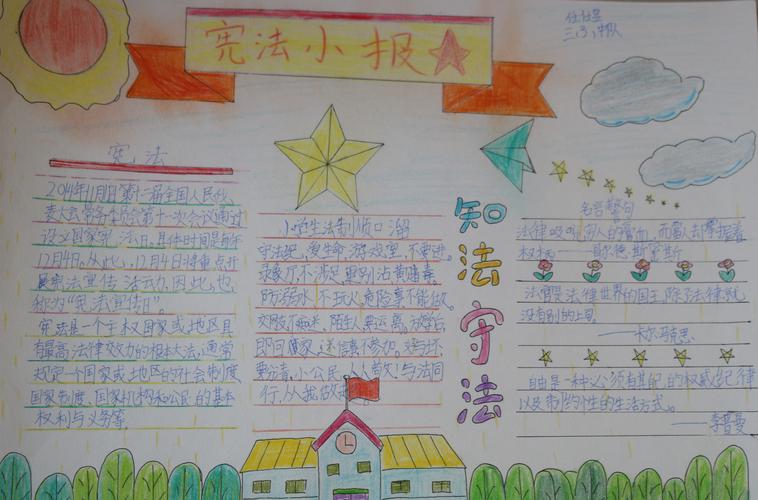 宪法小报
三、3、中队
宪法
2014年11月1日第十二届全国人民代
表大会常务委员会第十一次会议通过
设立国家宪法日。具体时间是每年
12月4日。从此，12月4日将重点开
展宪法宣传活动。因此，也
称为"宪法宣传日"。
宪法是一个主权国家或地区具
有最高法律效力的根本大法，通常
规定一个国家或地区的社会制度
国家制度、国家机构和公民的基本
权利与义务等。
小学生法制顺口溜
守法纪，爱生命，游戏室，不要进。
录像厅，不涉足，更别沾黄赌毒。
防溺水，不玩火，危险事不能做。
交朋友
陌生人要远离，放学后，
即回家，迷信事不参加。好与坏
要分清，小公民，人人做！与法同
行，从我做
知法守法
名言警句
法律
穷人的
而富人却掌握着
权柄
哥尔德斯密斯
法官是法律世界的国王，除了法律就
没有别的上司。
——卡尔·马克思
自由是一种必须有其
的权威、纪律
以及制约性的生活方式。
——李普曼